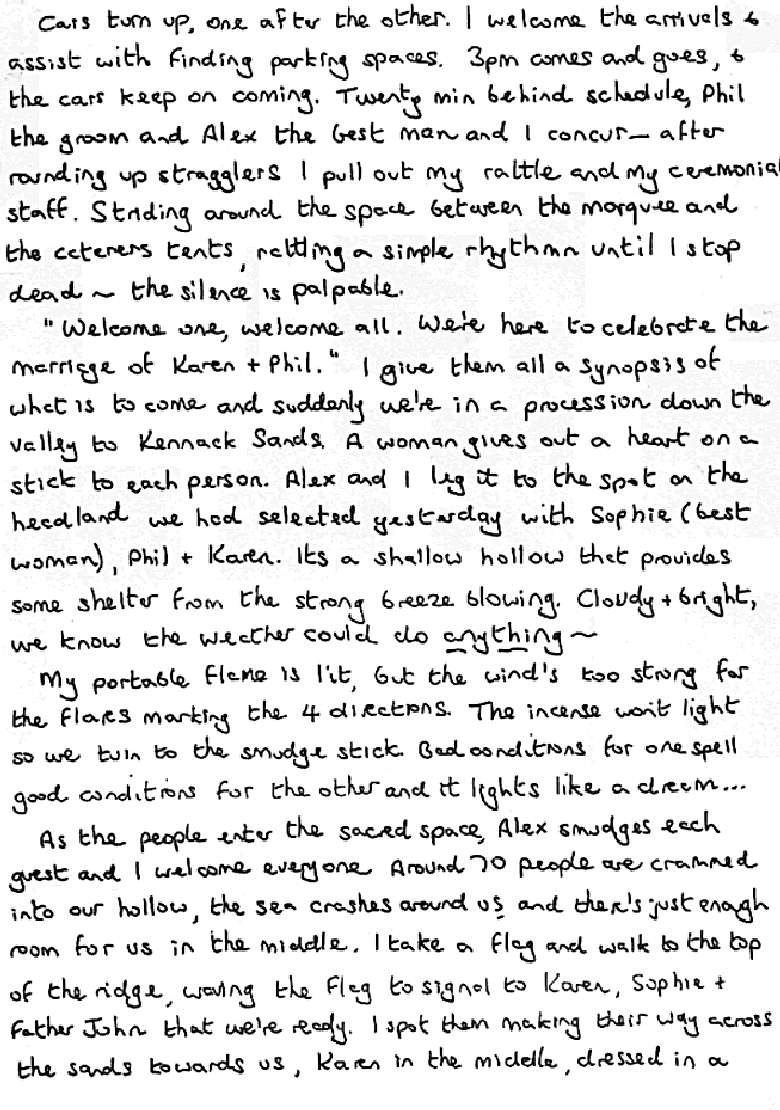 Cars turn up, one after the other. I welcome the arrivals &
assist with finding parking spaces. 3pm comes and goes, &
the cars keep on coming. Twenty min behind schedule, Phil
the groom and Alex the best man and I concur – after
rounding up stragglers I pull out my rattle and my ceremonial
staff. Striding around the space between the marquee and
the caterers tents, rattling a simple rhythmn until I stop
dead ~ the silence is palpable.
"Welcome one, welcome all. We're here to celebrate the
marriage of Karen + Phil." I give them all a synopsis of
what is to come and suddenly we're in a procession down the
valley to Kennack Sands. A woman gives out a heart on a
stick to each person. Alex and I leg it to the spot on the
headland we had selected yesterday with Sophie (best
woman), Phil + Karen. Its a shallow hollow that provides
some shelter from the strong breeze blowing. Cloudy + bright,
we know the weather could do anything ~
My portable flame is lit, but the wind's too strong for
the flares marking the 4 directions. The incense won't light
so we turn to the smudge stick. Bad conditions for one spell
good conditions for the other and it lights like a dream...
As the people enter the sacred space, Alex smudges each
guest and I welcome everyone. Around 70 people are crammed
into our hollow, the sea crashes around us and there's just enough
room for us in the middle. I take a flag and walk to the top
of the ridge, waving the flag to signal to Karen, Sophie +
Father John that we're ready. I spot them making their way across
the sands towards us, Karen in the middle, dressed in a